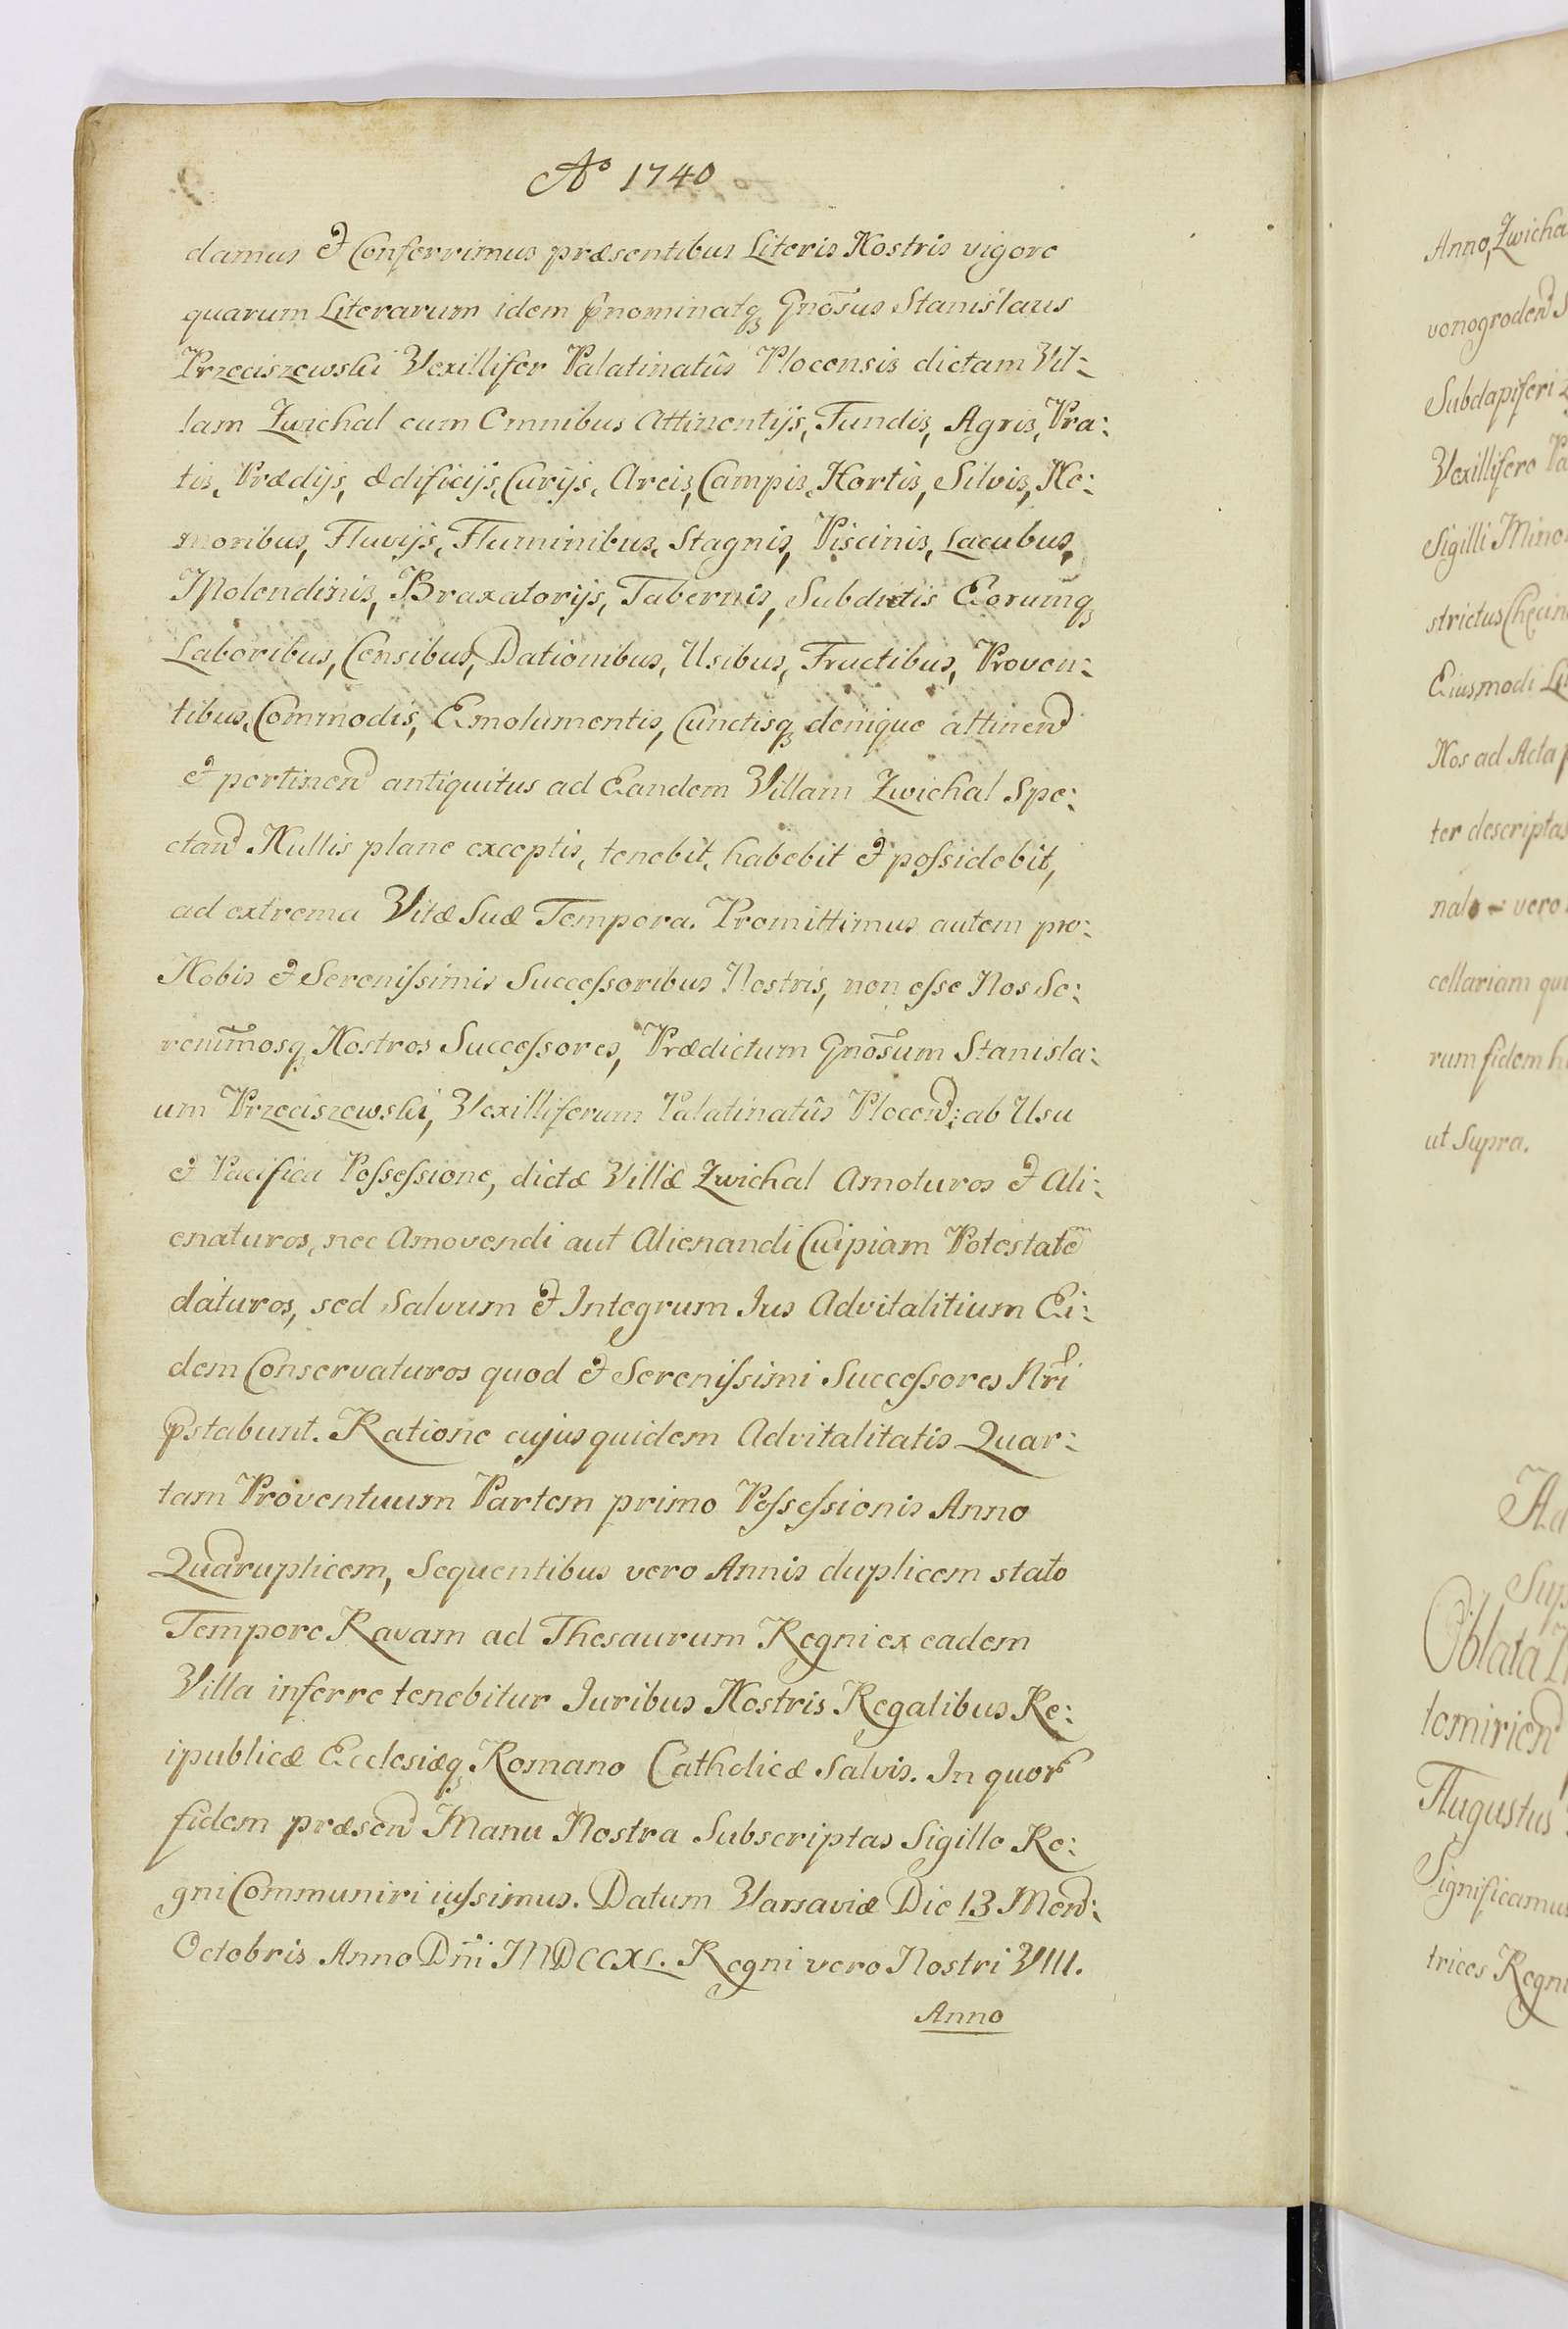 Aº 1740
damus & Conferrimus præsentibus Literis Nostris vigore
quarum Literarum idem p̃nominatq̃ Gnõsus Stanislaus
Przeciszewski Vexillifer Palatinatûs Plocensis dictam Vil:
lam Zwichal cum Omnibus Attinentijs, Fundis, Agris, Pra:
tis, Prædijs, ædificijs, Curijs, Areis, Campis, Hortis, Silvis, Ne:
moribus, Fluvijs, Fluminibus, Stagnis, Piscinis, Lacubus,
Molendinis, Braxatorijs, Tabernis, Subditis Eorumq̃
Laboribus, Censibus, Dationibus, Usibus, Fructibus, Proven:
tibus, Commodis, Emolumentis, Cunctisq̃ denique attinend
& pertinend antiquitus ad Eandem Villam Zwichal Spe:
ctand Nullis plane exceptis, tenebit, habebit & poſsidebit,
ad extrema Vitæ Suæ Tempora. Promittimus autem pro:
Nobis & Sereniſsimis Succeſsoribus Nostris, non eſse Nos Se:
renim̃osq̃ Nostros Succeſsores, Prædictum Gnõsum Stanisla:
um Przeciszewski, Vexilliferum Palatinatûs Plocend: ab Usu
& Pacifica Poſseſsione, dictæ Villæ Zwichal Amoturos & Ali:
enaturos, nec Amovendi aut Alienandi Cuipiam Potestatẽ
daturos, sed Salvum & Integrum Ius Advitalitium Ei:
dem Conservaturos quod & Sereniſsimi Succeſsores Nr̃i
p̃stabunt. Ratione cujus quidem Advitalitatis Quar:
tam Proventuum Partem primo Poſseſsionis Anno
Quadruplicem, Sequentibus vero Annis duplicem stato
Tempore Ravam ad Thesaurum Regni ex eadem
Villa inferre tenebitur Iuribus Nostris Regalibus Re:
ipublicæ Ecclesiæq̃ Romano Catholicæ Salvis. In quor̃
fidem præsend Manu Nostra Subscriptas Sigillo Re:
gni Communiri iuſsimus. Datum Varsaviæ Die 13 Mend:
Octobris Anno Dñi MDCCXL. Regni vero Nostri VIII.
Anno
Anno, Zwicha
Subdapiferi
Vexillifero Pa
Sigilli Mino
Eiusmodi
Nos ad Acta
ter descriptas
vero
cellariam
rum fidem
ut Supra.
Ad
Sup
Oblata
tomiriend
Augustus
Significamus
trices Regni